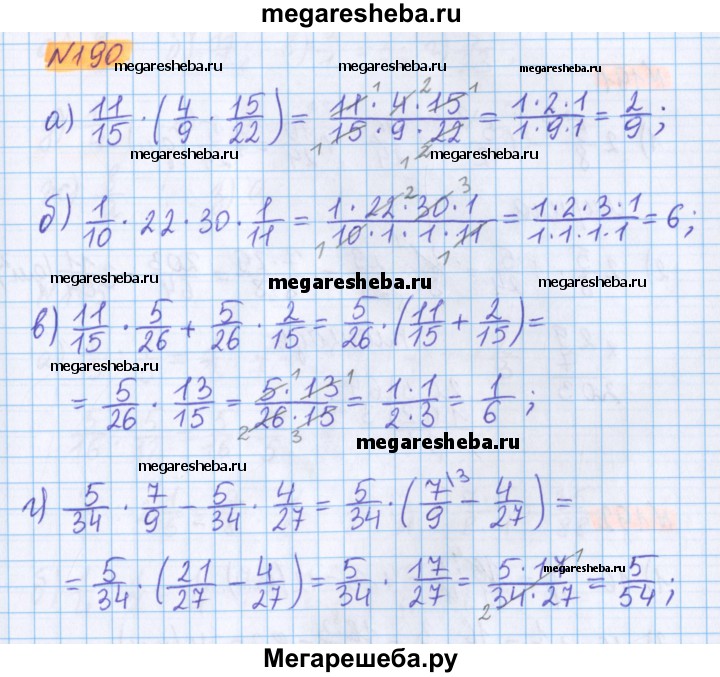 megaresheba.ru
№190
megaresheba.ru megaresheba.ru megaresheba.ru
а) 11/15 · (4/9 · 15/22) = 11·4·15/15·9·22 = 1·2·1/1·9·1 = 2/9 ;
megaresheba.ru megaresheba.ru
б) 1/10 · 22 · 30 · 1/11 = 1·22·30·1/10·1·1·11 = 1·2·3·1/1·1·1·1 = 6 ;
megaresheba.ru megaresheba.ru megaresheba.ru
в) 11/15 · 5/26 + 5/26 · 2/15 = 5/26 · (11/15 + 2/15) =
megaresheba.ru
= 5/26 · 13/15 = 5·13/26·15 = 1·1/2·3 = 1/6 ;
megaresheba.ru
megaresheba.ru
г) 5/34 · 7/9 − 5/34 · 4/27 = 5/34 · (7\3/9 − 4/27) =
= 5/34 · (21/27 − 4/27) = 5/34 · 17/27 = 5·17/34·27 = 5/54 ;
Мегарешеба.ру